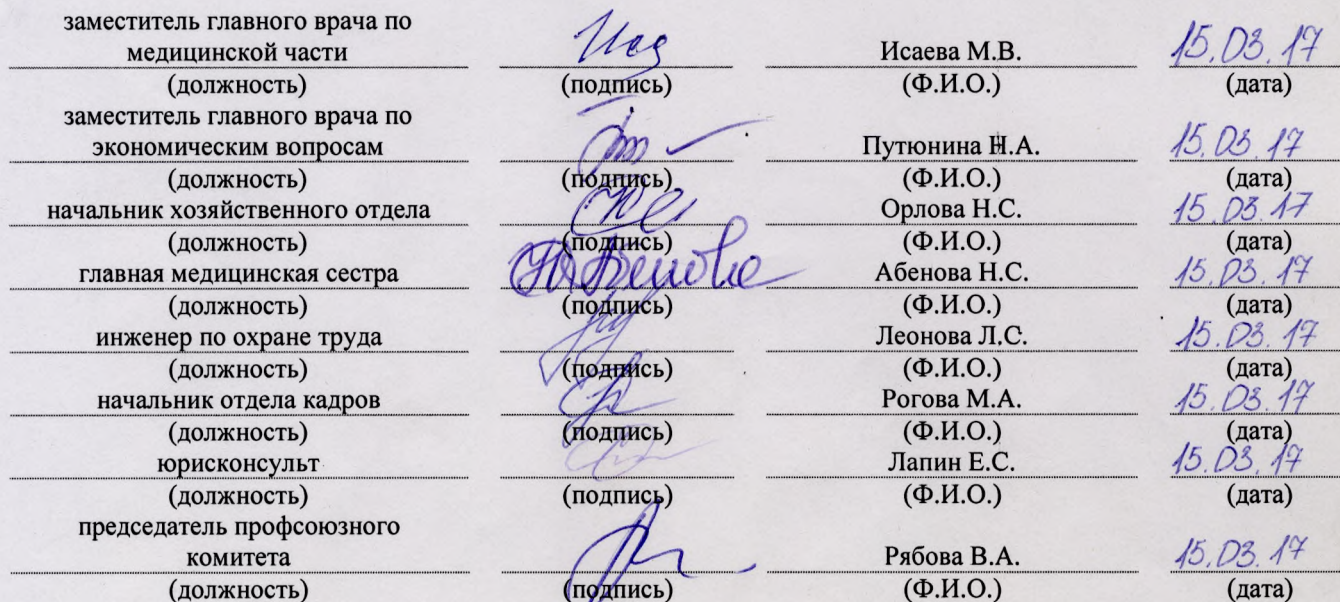 заместитель главного врача по
медицинской части Исаева М.В. 15.03.17
(должность) (подпись) (Ф.И.О.) (дата)
заместитель главного врача по
экономическим вопросам Путюнина Н.А. 15.03.17
(должность) (подпись) (Ф.И.О.) (дата)
начальник хозяйственного отдела Орлова Н.С. 15.03.17
(должность) (подпись) (Ф.И.О.) (дата)
главная медицинская сестра Абенова Н.С. 15.03.17
(должность) (подпись) (Ф.И.О.) (дата)
инженер по охране труда Леонова Л.С. 15.03.17
(должность) (подпись) (Ф.И.О.) (дата)
начальник отдела кадров Рогова М.А. 15.03.17
(должность) (подпись) (Ф.И.О.) (дата)
юрисконсульт Лапин Е.С. 15.03.17
(должность) (подпись) (Ф.И.О.) (дата)
председатель профсоюзного
комитета Рябова В.А. 15.03.17
(должность) (подпись) (Ф.И.О.) (дата)